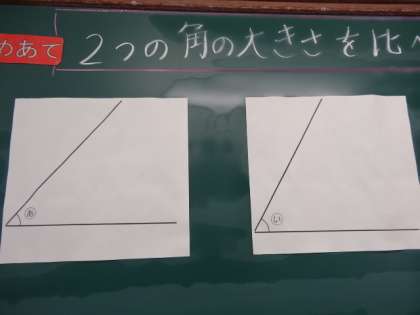 めあて
2つの角の大きさを比べ
あ
い